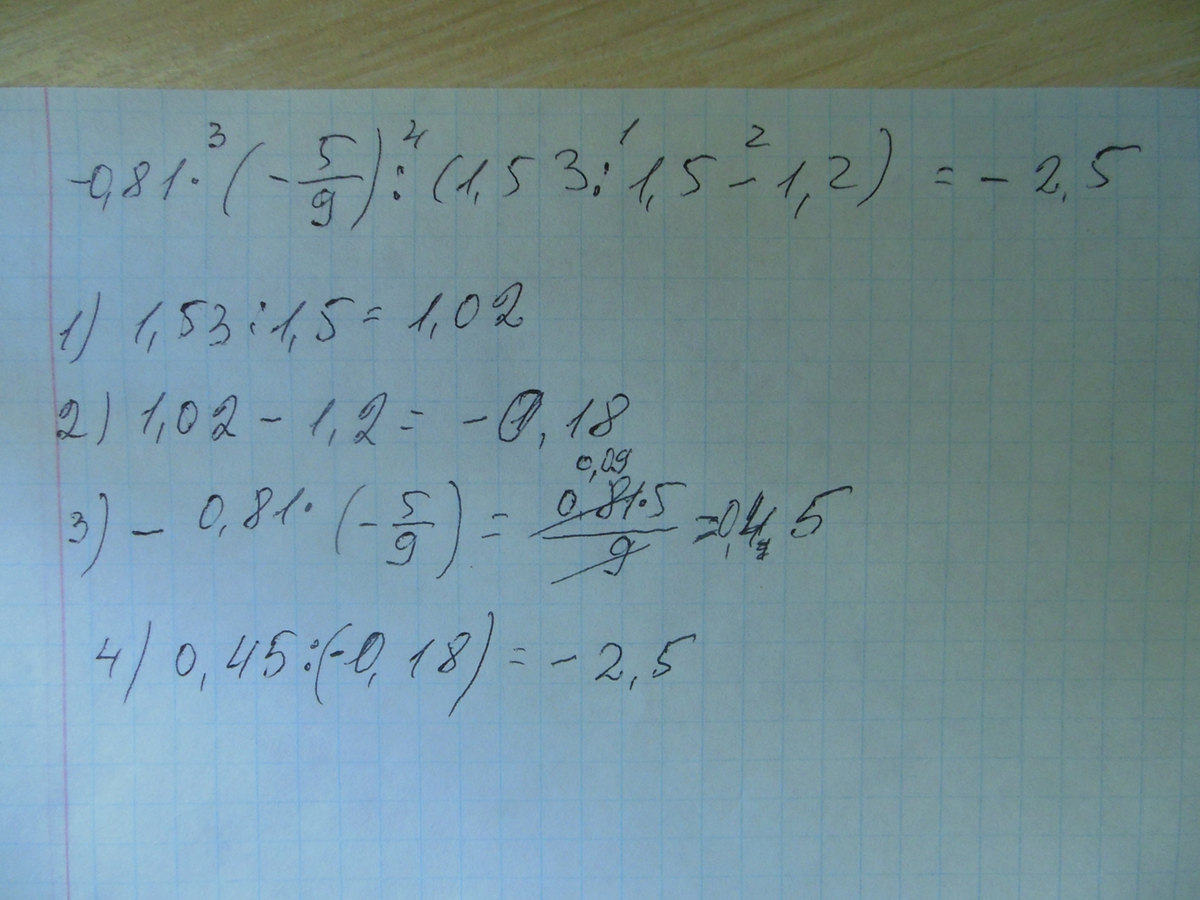 -0,81·³(-5/9):⁴(1,53:¹1,5-²1,2) = -2,5
1) 1,53:1,5 = 1,02
2) 1,02 - 1,2 = -0,18
3) - 0,81·(-5/9) = 0,09 0,81·5/9 = 0,45
4) 0,45:(-0,18) = -2,5